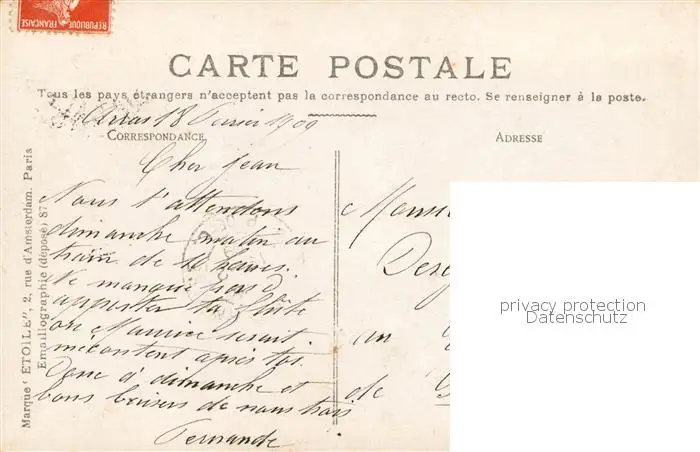 REPUBLIQUE FRANÇAISE
CARTE POSTALE
Tous les pays étrangers n'acceptent pas la correspondance au recto. Se renseigner à la poste.
Arras 18 Février 1909
CORRESPONDANCE
Cher Jean
Nous t'attendons
dimanche matin au
train de 10 heures.
Ne manque pas d
apporter ta flûte
ou Maurice serait
mécontent après toi.
Donc à dimanche et
bons baisers de nous trois
Fernande
ADRESSE
Monsi
Des
au
de
privacy protection
Datenschutz
Marque "ÉTOILE", 2, rue d'Amsterdam. Paris
Emaillographie (déposé) 87